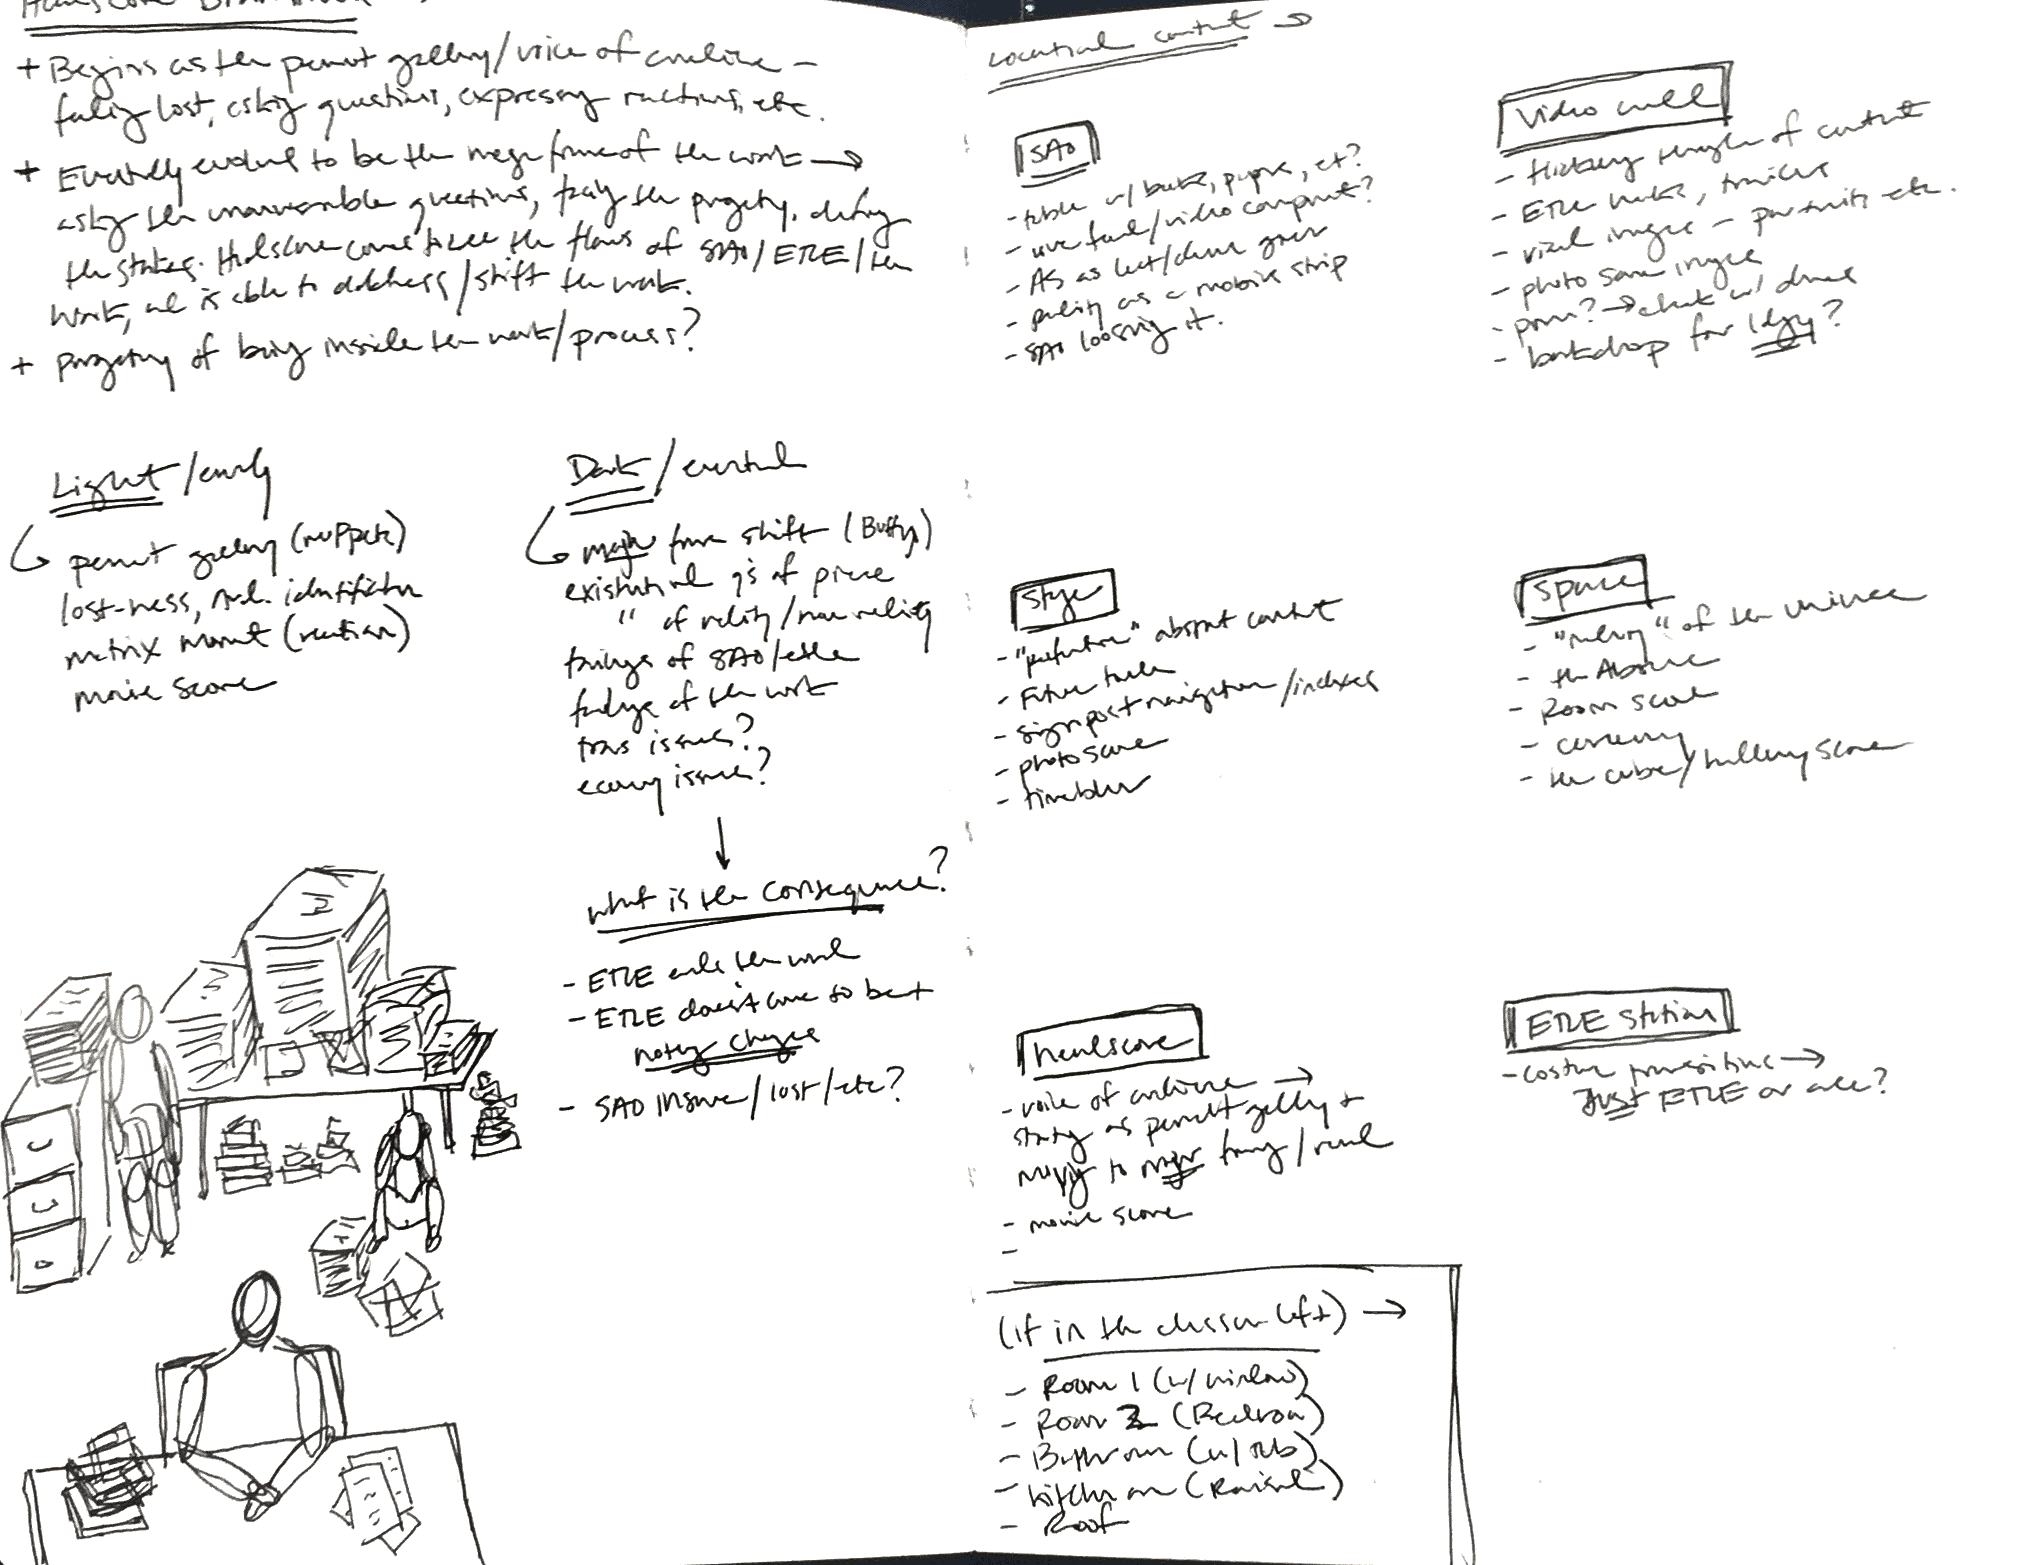 + Begins as the peanut gallery/voice of audience –
feeling lost, asking questions, expressing reactions, etc.
+ Eventually evolves to be the mega frame of the work →
asking the unanswerable questions, facing the purgatory, defining
the stakes. Headscore comes to see the flaws of SAO/ETLE/the
work, and is able to address/shift the work.
+ purgatory of being inside the work/process?
Light/early
peanut gallery (muppets)
lost-ness, aud. identification
matrix moment (reaction)
movie score
Dark/eventual
major frame shift (Buffy)
existential q's of piece
" of reality/non reality
failings of SAO/ETLE
failings of the work
trans issues?
economy issues?
what is the consequence?
- ETLE ends the work
- ETLE doesn't care so beat
nothing changes
- SAO insane/lost/etc?
locational content →
SAO
- table w/ books, papers, etc?
- live feed/video component?
- As as
- pulling as a mobius strip
- SAO loosing it.
video wall
- flickering through of content
- ETLE works, trailers
- viral images – portraits etc.
- photo score images
- porn? →
- backdrop for Iggy?
Stage
- abstract content
- Future
- signpost navigation/indexes
- photo score
- timeblur
Space
- "making" of the universe
- the Absence
- Room score
- ceremony
- the cube/hallway score
headscore
- voice of audience →
starting as peanut gallery +
moving to major framing/
- movie score
-
ETLE Station
- costume →
Just ETLE or all?
(if in the classroom left) →
- Room 1 (w/ window)
- Room 2 (Bedroom)
- Bathroom (w/ tub)
- kitchen area (Raised)
- Roof